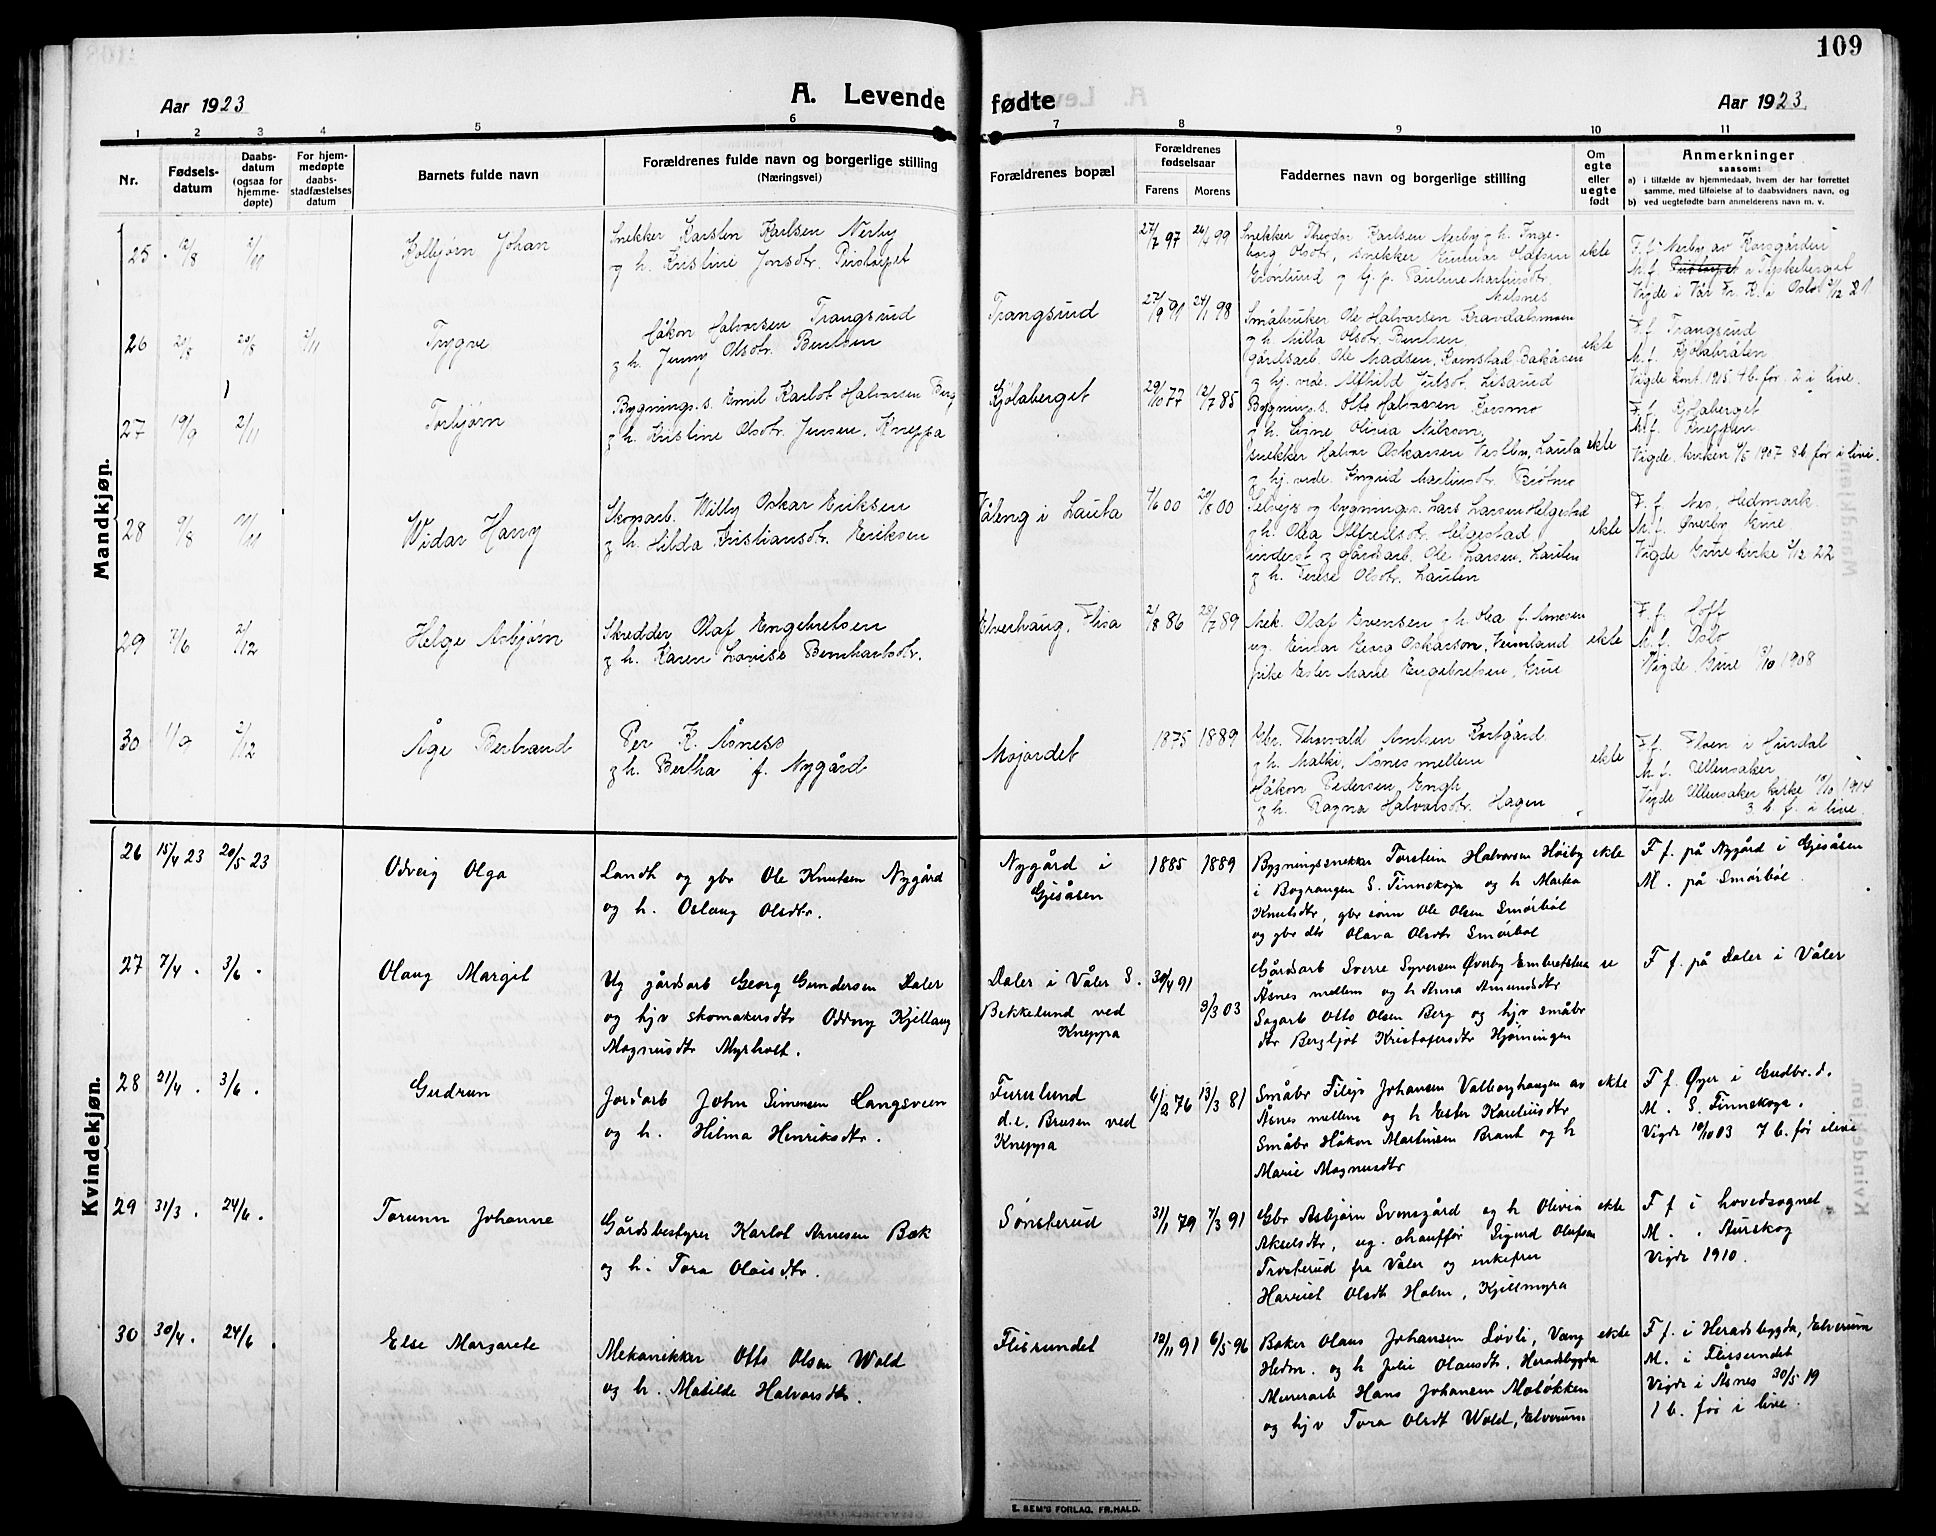 109
Aar 1923
A. Levende fødte
Aar 1923.
1 2 3 4 5 6 7 8 9 10 11
Nr.
Fødsels-
datum
Daabs-
datum
(ogsaa for
hjemme-
døpte)
For hjem-
medøpte
daabs-
stadfæstelses
datum
Barnets fulde navn
Forældrenes fulde navn og borgerlige stilling
(Næringsvei)
Forældrenes bopæl
Forældrenes
fødselsaar
Farens
Morens
Faddernes navn og borgerlige stilling
Om
egte
eller
uegte
født
Anmerkninger
saasom:
a) i tilfælde av hjemmedaab, hvem der har forrettet
samme, med tilføielse af to daabsvidners navn, og
b) ved uegtefødte barn anmelderens navn m. v.
Mandkjøn.
25 12/8 2/11
Kolbjørn Johan
Snekker Karsten Karlsen Nerby
og h. Kristine Jonsdtr.
27/7 97 99
Snekker Theodor Karlsen Nerby og h. Inge-
borg Olsdtr, snekker Gunnar Olafsen
Grønlund og hj. p. Pauline Martinsdtr.
ekte
F. f. Nerby av Korsgården
M. f. i Tyskeberget
Vigde i Vår Fr. K. i Oslo 21
26 20/8 2/11
Trygve
Håkon Halvorsen Trangsund
og h. Jenny Olsdtr. Berntsen
Trangsund
27/9 91 24/1 98
Småbruker Ole Halvorsen
og h. Milla Olsdtr. Berntsen,
gårdsarb. Ole Madsen, Komstad,
og hj. vede. Alfhild Lisarud
ekte
F. f. Trangsund
M. f. Kjølabråten
Vigde 1915. 4 b. før. 2 i live.
27 19/9 2/11
Torbjørn
Bygnings.s. Emil Karlot Halvorsen Berg
og h. Kristine Olsdtr. Jensen, Kneppa
Kjølaberget
29/10 77 12/7 85
Bygnings.s. Otto Halvorsen Korsmo
og h. Signe Olivia Nilsen,
snekker Halvor Oskarsen Vestby, Lauta
og hj. vede. Ingrid Martinsdtr. Brøtmo
ekte
F. f. Kjølaberget
M. f. Kneppen
Vigde. kirken 1907 8 b. før i live.
28 9/8 11/11
Widar Harry
Skogsarb. Willy Oskar Eriksen
og h. Hilda Kristiansdtr. Eriksen
Våleng i Lauta
00 20/8 00
Selveje og bygnings. Lars Larsen Helgestad
og h. Olea Alfredsdtr. Helgestad,
inderst og gårdarb. Ole Larsen, Lauten
og h. Terese Olsdtr. Lauten
ekte
F. f. Nes, Hedmark
M. f. Øverby Grue
Vigde Grue kirke 22
29 7/6 2/12
Helge Asbjørn
Skredder Olaf Engebretsen
og h. Karen Lovise Bernhartsdtr.
Elverhaug, Flisa
2/8 86 28/7 89
Mek. Olaf Evensen og h. Olea f. Arnesen
ug. Einar Oskarson, Vermland
pike Ester Marie Engebretsen, Grue
ekte
F. f.
M. f. Oslo
Vigde. Grue 1908
30 11/9 2/12
Åge Bertrand
Per K. Åsness
og h. Bertha f. Nygård
Mojordet
1875 1889
Gbr. Thorvald Arntsen Kortgård
og h. Malki, Åsnes mellem
Håkon Pedersen Engh
og h. Ragna Halvorsdtr. Hagen
ekte
F. f. Floen i Hurdal
M. f. Ullensaker
Vigde Ullensaker kirke 1914
3 b. f. i live.
Kvindekjøn.
26 15/4 23 20/5 23
Odveig Olga
Landh og gbr Ole Knutsen Nygård
og h. Oslaug Olsdtr.
Nygård i
Gjesåsen
1885 1889
Bygningssnekker Torstein Halvorsen Høiby
i Bograngen S. Finneskoga og h Martea
Knutsdtr, gbr sønn Ole Olsen Smørbøl
og gbr dtr Olava Olsdtr Smørbøl
ekte
F f. på Nygård i Gjesåsen
M. på Smørbøl.
27 7/4. 3/6.
Olaug Margit
Ug gårdsarb Georg Gundersen Daler
og hjv skomakersdtr Oddny Kjellaug
Magnusdtr Myrholt.
Daler i Våler S.
Bekkelund ved
Kneppa
30/4 91
9/3 03
Gårdsarb Sverre Syversen Øverby Embretslea
Åsnes mellem og h Anna Amundsdtr
Sagarb Otto Olsen Berg og hjv småbr
dtr Bergljot Kristofersdtr Hjørningen
F f. på Daler i Våler
28 21/4. 3/6.
Gudrun
Jordarb John Simensen Langsveen
og h. Hilma Henriksdtr.
Furulund
d.e. Bruson ved
Kneppa
6/2 76 13/3 81
Småbr Filip Johansen Valborghaugen av
Åsnes mellem og h Ester Kareliusdtr
Småbr Håkon Martinsen Brant og h
Marie Magnusdtr
ekte
F f. Øyer i Gudbr. d.
M. S. Finneskoga.
Vigde 10/10 03 7 b. før i live
29 31/3. 24/6.
Torunn Johanne
Gårdsbestyrer Karlot Arnesen Bæk
og h. Tora Olaisdtr.
Sønsterud
31/1 79 7/3 91
Gbr Asbjørn Svensgård og h Olivia
Akselsdtr, ug. chauffør Sigurd Olufsen
Trosterud fra Våler og enkefru
Harriet Olsdtr Holm, Kjellmyra
ekte
F f i hovedsognet
M. . Aurskog
Vigde 1910.
30 30/4. 24/6.
Else Margarete
Mekanikker Otto Olsen Wold
og h. Matilde Halvorsdtr.
Flisrundet
10/11 91 6/5 96
Baker Olaus Johansen Løvli, Vang
Hedm. og h Julie Olausdtr, Heradsbygda
Murerarb Hans Johansen Moløkken
og hjv Tora Olsdt Wold, Elverum
ekte
F f. i Heradsbygda, Elverum
M. i Flisrundet
Vigde i Åsnes 30/5 19
1 b. før i live.
E. SEM'S FORLAG, FR.HALD.